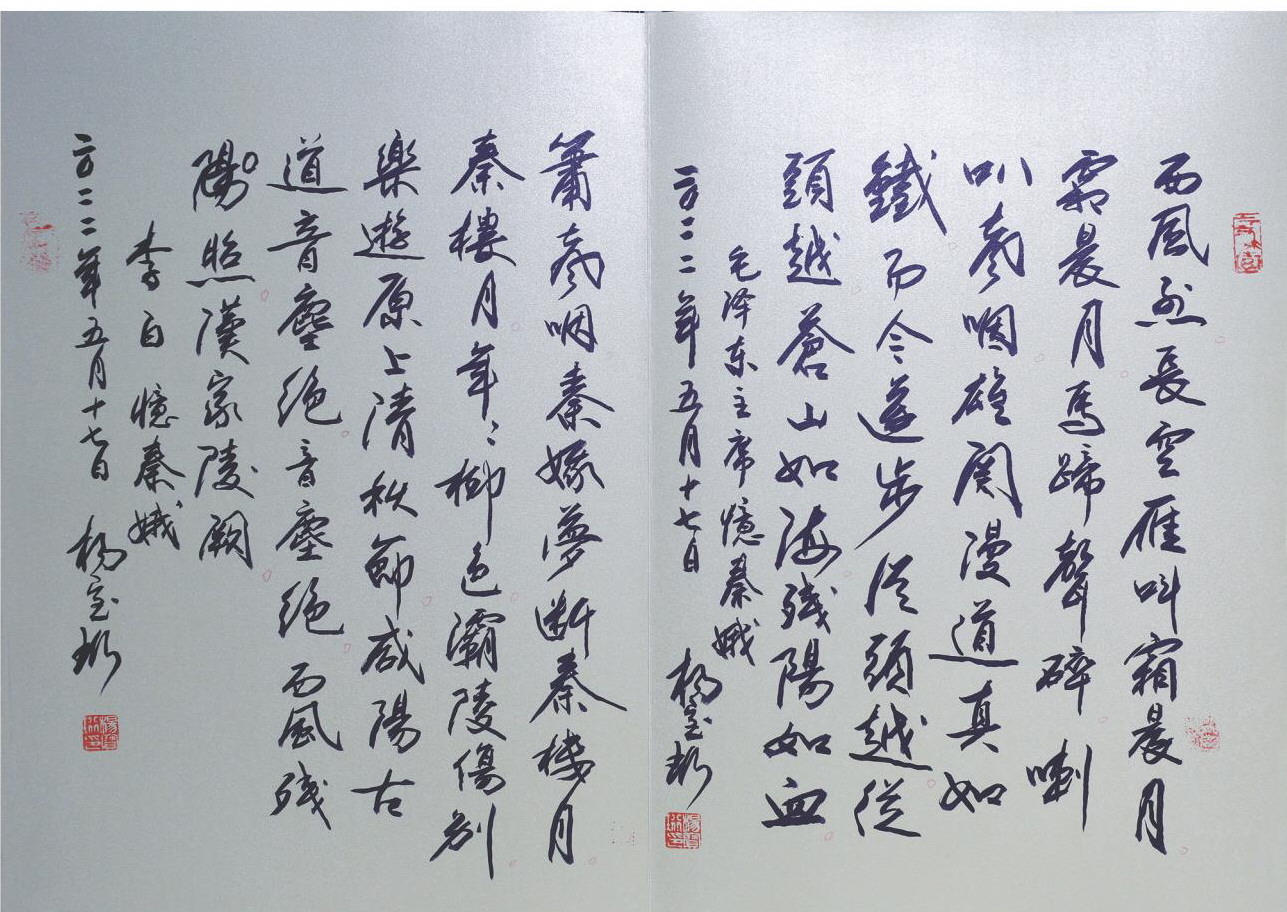 西風烈長空雁叫霜晨月
霜晨月馬蹄聲碎喇
叭声咽雄関漫道真如
鐵而今邁步從頭越從
頭越蒼山如海残陽如血
毛泽东主席憶秦娥
二〇二二年五月十七日 杨宝
簫声咽秦娥夢断秦樓月
秦樓月年々柳色灞陵傷别
樂遊原上清秋節咸陽古
道音塵绝音塵绝西風残
陽照漢家陵闕
李白 憶秦娥
二〇二二年五月十七日 杨宝